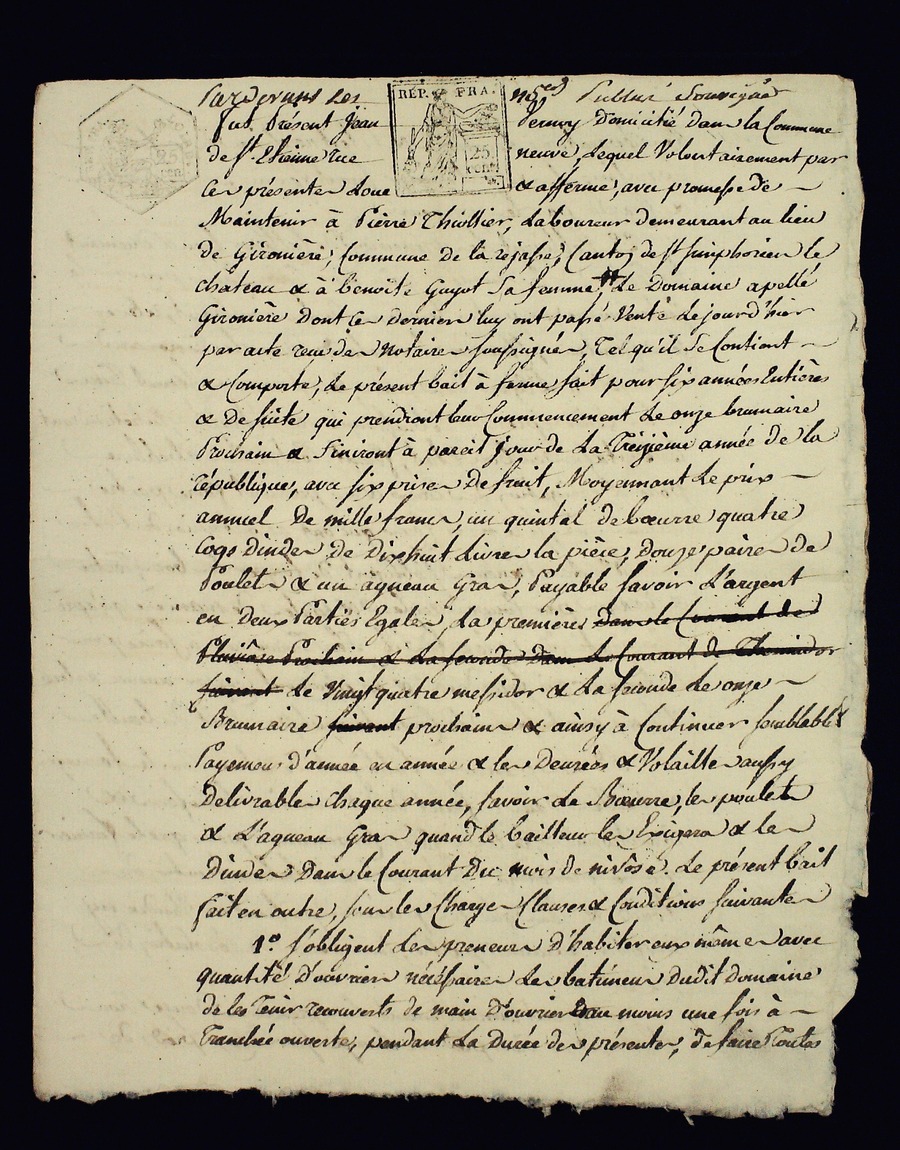 Pardevant Les Nres Publics Soussignés
REP. FRA.
25 cent.
fut Présent Jean Perny Domicilié dans la Commune
de St Etienne rue neuve, Lequel Volontairement par
Ces présentes Loue & afferme, avec promesse de
Maintenir à Pierre Thiollier, Laboureur demeurant au lieu
de Gironière, Commune de la rejasse, Canton de St Simphorien le
château & à benoite Guyot Sa femme, Le Domaine apellé
Gironière Dont Ce Dernier luy ont passé Vente Le jour d'hier
par acte recu des Notaires Soussignés, Tel qu'il Se Contient
& Comporte, Le présent bail à ferme fait pour six années Entières
& De Suite qui prendront leur Commencement Le onze brumaire
Prochain & finiront à pareil Jour de La Treizième année de la
république, avec six prises De fruit, Moyennant Le prix
annuel De mille francs, un quintal de bœurre quatre
Coqs Dindes De Dixhuit Livres la pièce, Douze paires de
Poulets & un agneau Gras, Payable Savoir L'argent
en Deux Parties Egales, La premières Dans le Courant de
Pluviôse Prochain & La Seconde Dans Le Courant de Thermidor
suivant Le Vingt quatre messidor & La seconde Le onze
Brumaire suivant prochains & ainsy à Continuer semblables
Payemens d'année en année & les Denrées & Volailles aussy
Delivrables Chaque année, Savoir Le Bœurre, les poulets
& L'agneau Gras quand le bailleur les Exigera & les
Dindes Dans le Courant Du mois de nivôse. Le présent bail
fait en outre, sous les Charges Clauses & Conditions suivantes
1° S'obligent Les preneurs D'habiter eux même avec
quantité D'ouvriers nécéssaires Les batimens Dudit domaine
de les Tenir recouverts de main D'ouvrier au moins une fois à
Tranchée ouverte, pendant La Durée des présentes, de faire Toutes